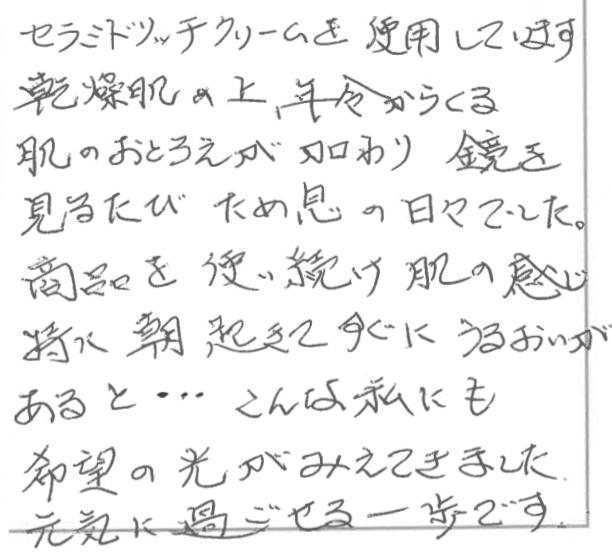 セラミドリッチクリームを使用しています
乾燥肌の上、年令からくる
肌のおとろえが加わり 鏡を
見るたび ため息の日々でした。
商品を使い続け 肌の感じ
特に朝起きてすぐに うるおいが
あると・・・ こんな私にも
希望の光がみえてきました.
元気に過ごせる一歩です.